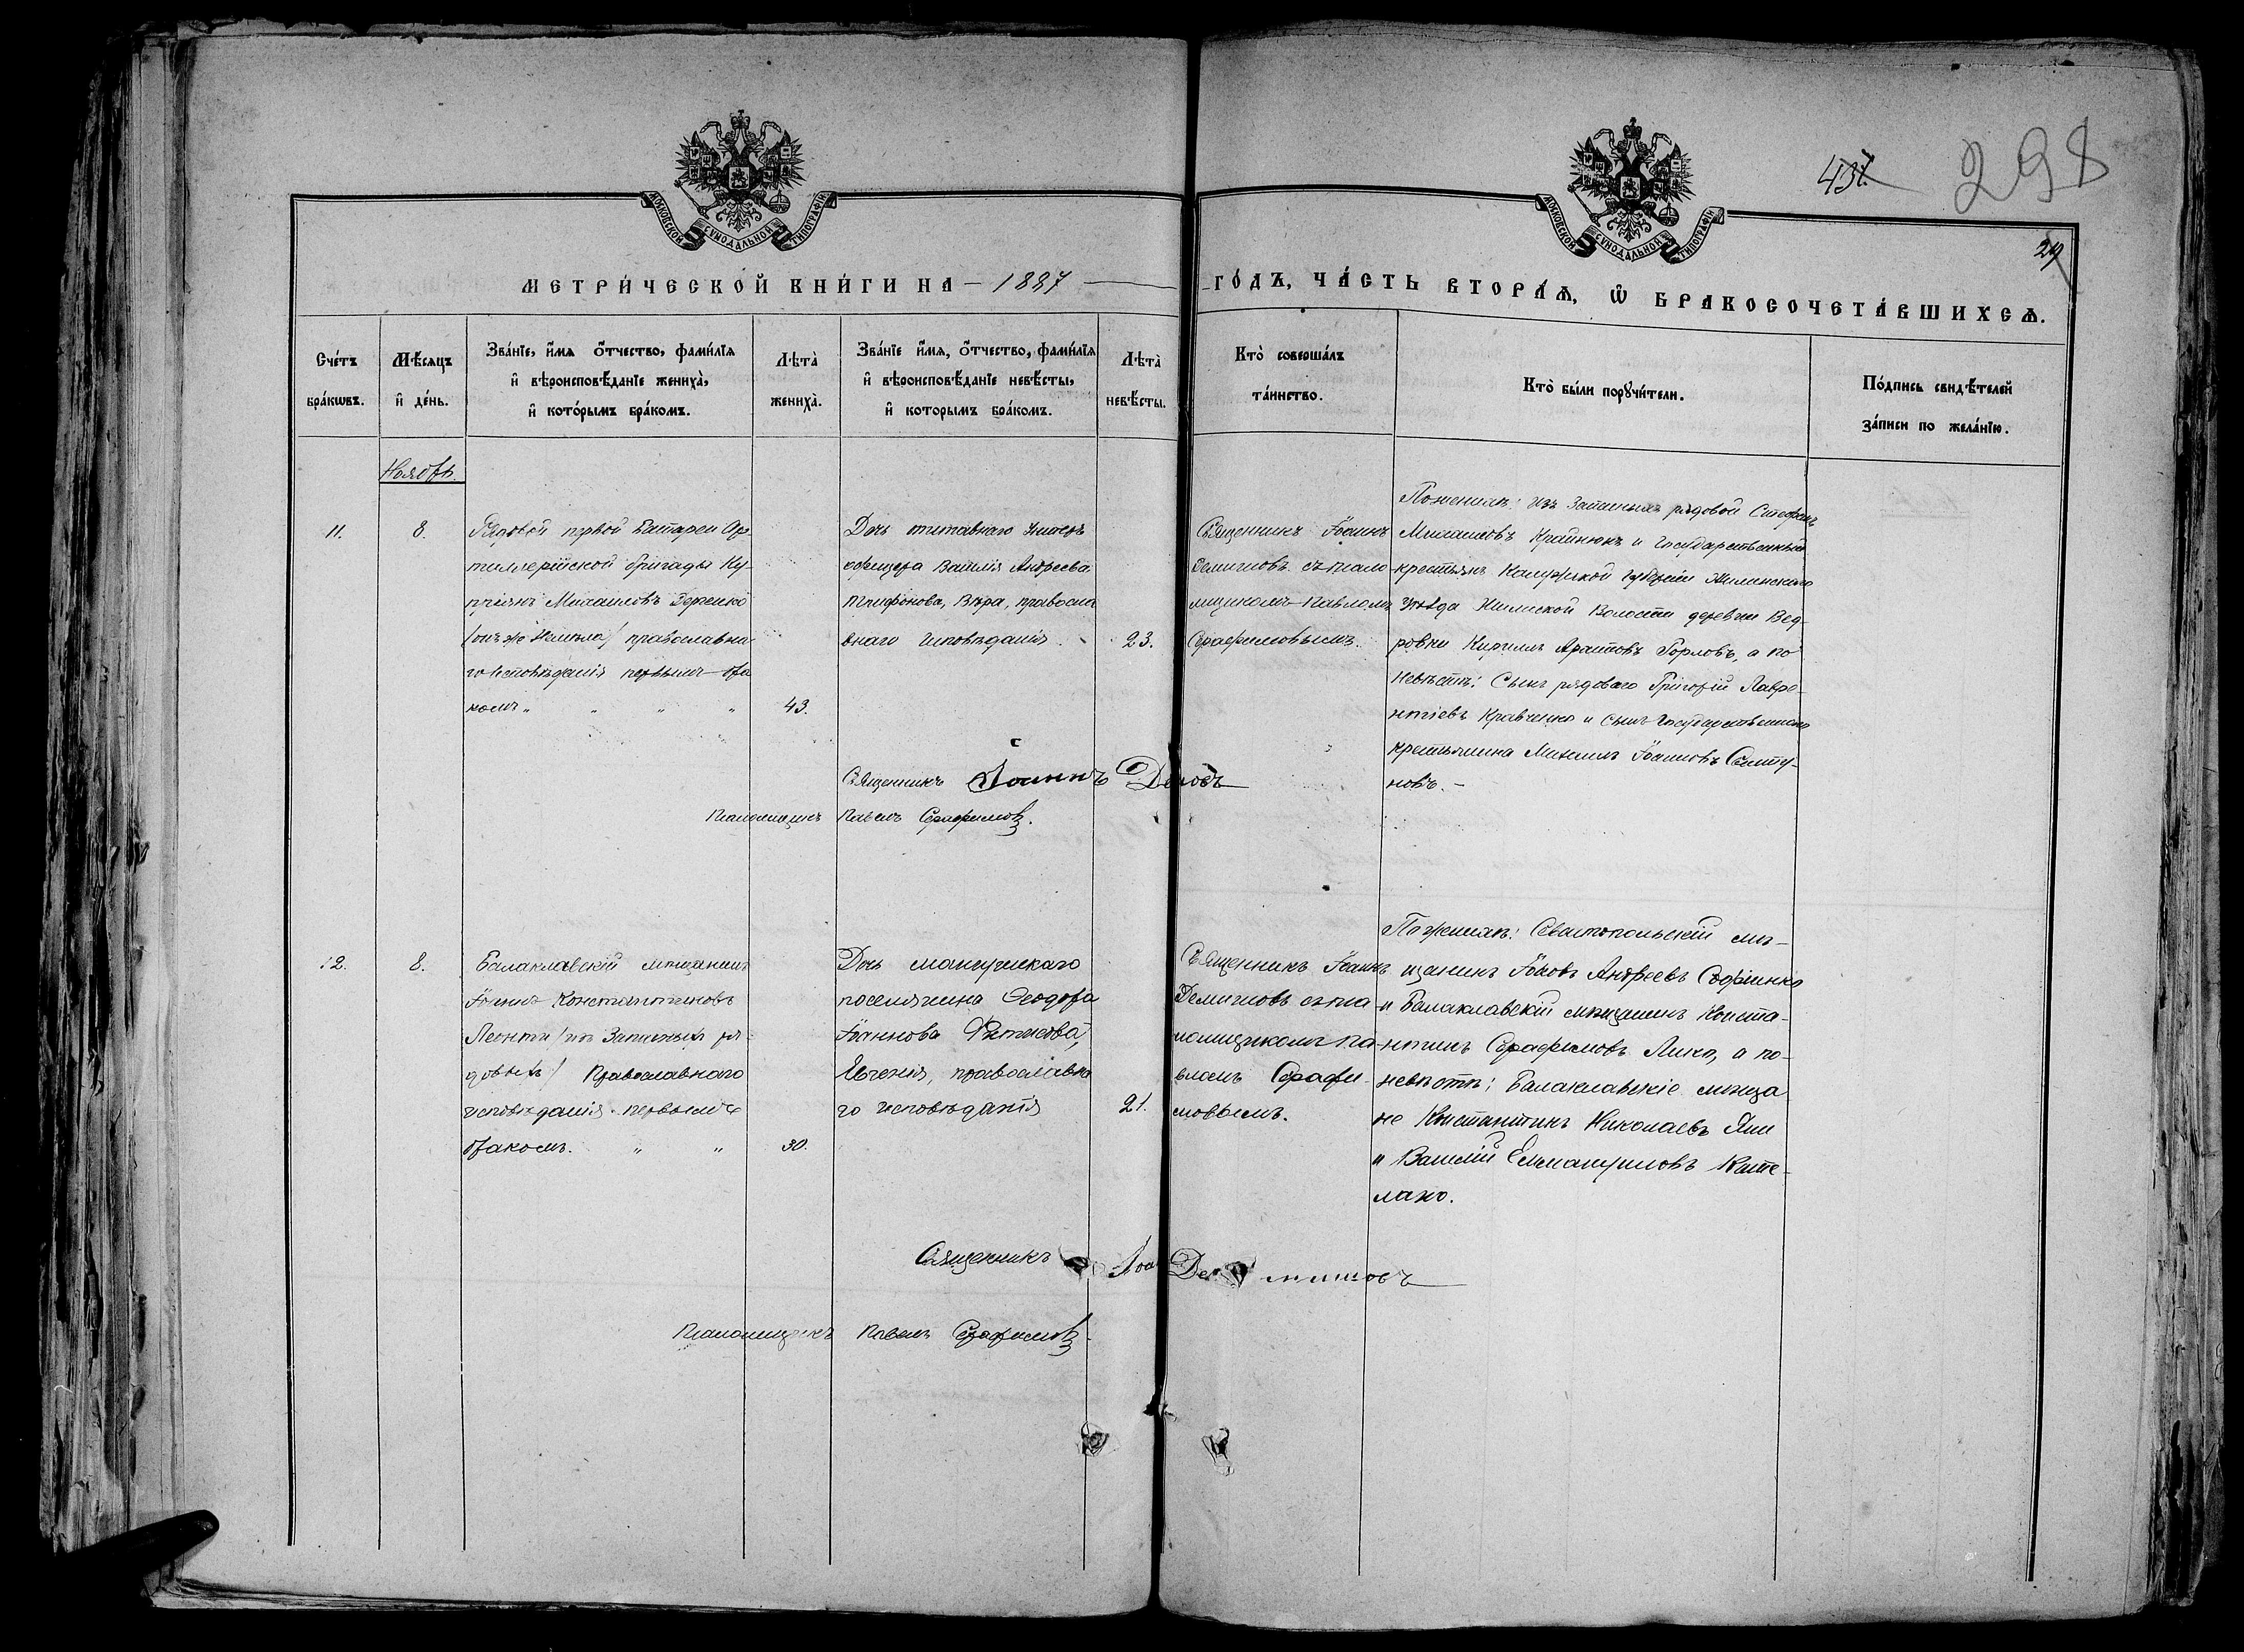 МОСКОВСКОЙ СѴНОДАЛЬНОЙ ТИПОГРАФІИ
МОСКОВСКОЙ СѴНОДАЛЬНОЙ ТИПОГРАФІИ
437. 298
29
МЕТРИ́ЧЕСКОЙ КНИ́ГИ НА 1887 ГО́ДЪ, ЧА́СТЬ ВТОРА́Ѧ, Ѡ҆ БРАКОСОЧЕТА́ВШИХСѦ.
Сче́тъ бра́кѡвъ.
Мѣ́сѧцъ и҆ де́нь.
Зва́нїе, и҆́мѧ о҆́тчество, фамі́лїѧ
и҆ вѣроисповѣ́данїе жениха̀,
и҆ кото́рымъ бра́комъ.
Лѣта̀ жениха̀.
Зва́нїе и҆́мѧ, о҆́тчество, фамі́лїѧ
и҆ вѣроисповѣ́данїе невѣ́сты,
и҆ которымъ бра́комъ.
Лѣта̀ невѣ́сты.
Кто̀ соверша́лъ та́инство.
Кто̀ бы́ли порꙋчи́тели.
По́дпись свидѣ́телей за́писи по жела́нїю.
Ноябрь.
11.
8.
Рядовой первой батареи Ар-
тиллерійской бригады Ку-
пріянъ Михаиловъ
православна-
го исповѣданія первымъ бра-
комъ " " " "
43.
Дочь отставнаго унтеръ
офицера Василія Андреева
Трифонова, Вѣра, правосла
внаго исповѣданія.
23.
Священникъ Іоаннъ
Демишовъ съ псало
мщикомъ Павломъ
Серафимовымъ.
По женихѣ: изъ запасныхъ рядовой Стефанъ
Михаиловъ Крайнюкъ и государственный
крестьянъ Калужской губерніи Жиздинскаго
уѣзда волости деревни
Кириллъ Горловъ, а по
невѣстѣ: Сынъ рядоваго Григорій Лавре-
нтіевъ Кравченко и сынъ государственнаго
крестьянина Михаилъ Іоанновъ
новъ.
Священникъ Іоаннъ
Псаломщикъ Павелъ Серафимовъ.
12.
8.
Балаклавскій мѣщанинъ
Іоаннъ Константиновъ
Леонти /изъ запасныхъ ря-
довыхъ/ православнаго
исповѣданія первымъ
бракомъ. " "
30.
Дочь мангушскаго
поселянина Ѳеодора
Іоаннова
Евгенія, православна
го исповѣданія
21.
Священникъ Іоаннъ
Демишовъ съ пса
ломщикомъ Па-
вломъ Серафи-
мовымъ.
По женихѣ: Севастопольскій мѣ-
щанинъ Іаковъ Андреевъ Софіенко
и Балаклавскій мѣщанинъ Конста-
нтинъ Серафимовъ Лико, а по
невѣстѣ: Балаклавскіе мѣща
не Константинъ Николаевъ
и Василій Еммануиловъ Капе-
лако.
Священникъ Іоа Де мишовъ
Псаломщикъ Павелъ Серафимовъ